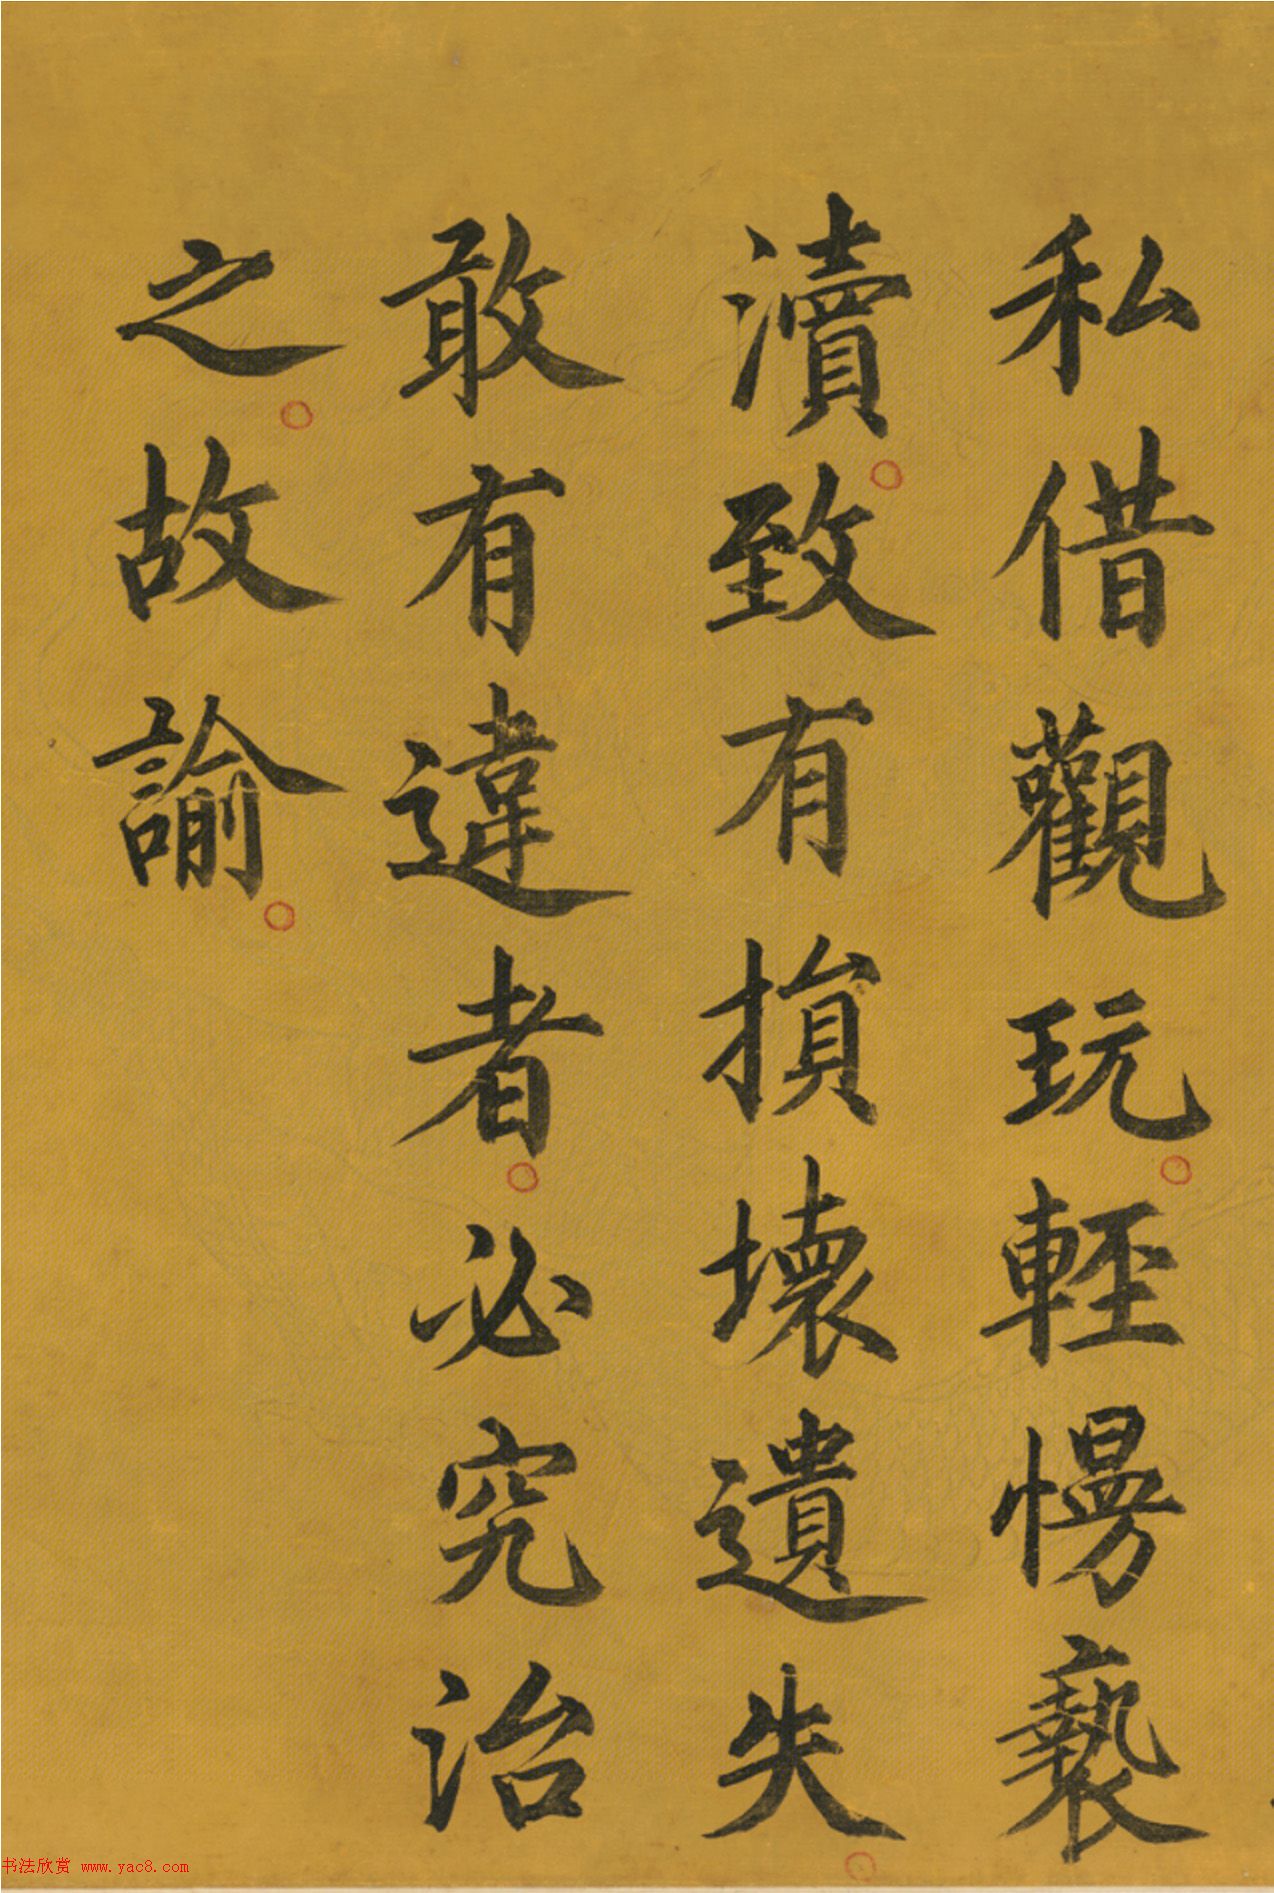 私借觀玩輕慢褻
瀆致有損壞遺失
敢有違者必究治
之故諭
书法欣赏 www.yac8.com